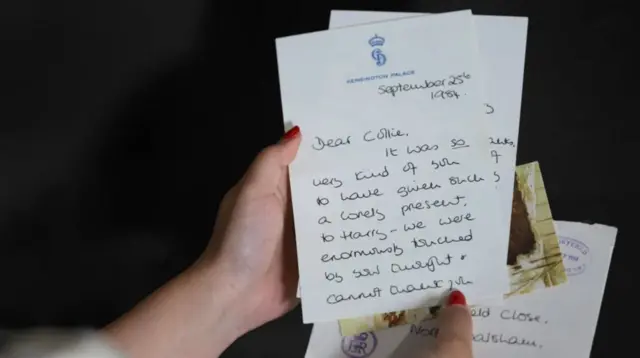 KENSINGTON PALACE
September 25th
1984.
Dear Collie.
It was so
very kind of you
to have given such
a lovely present
to Harry - we were
enormously touched
by your thought &
cannot thank you
Close.